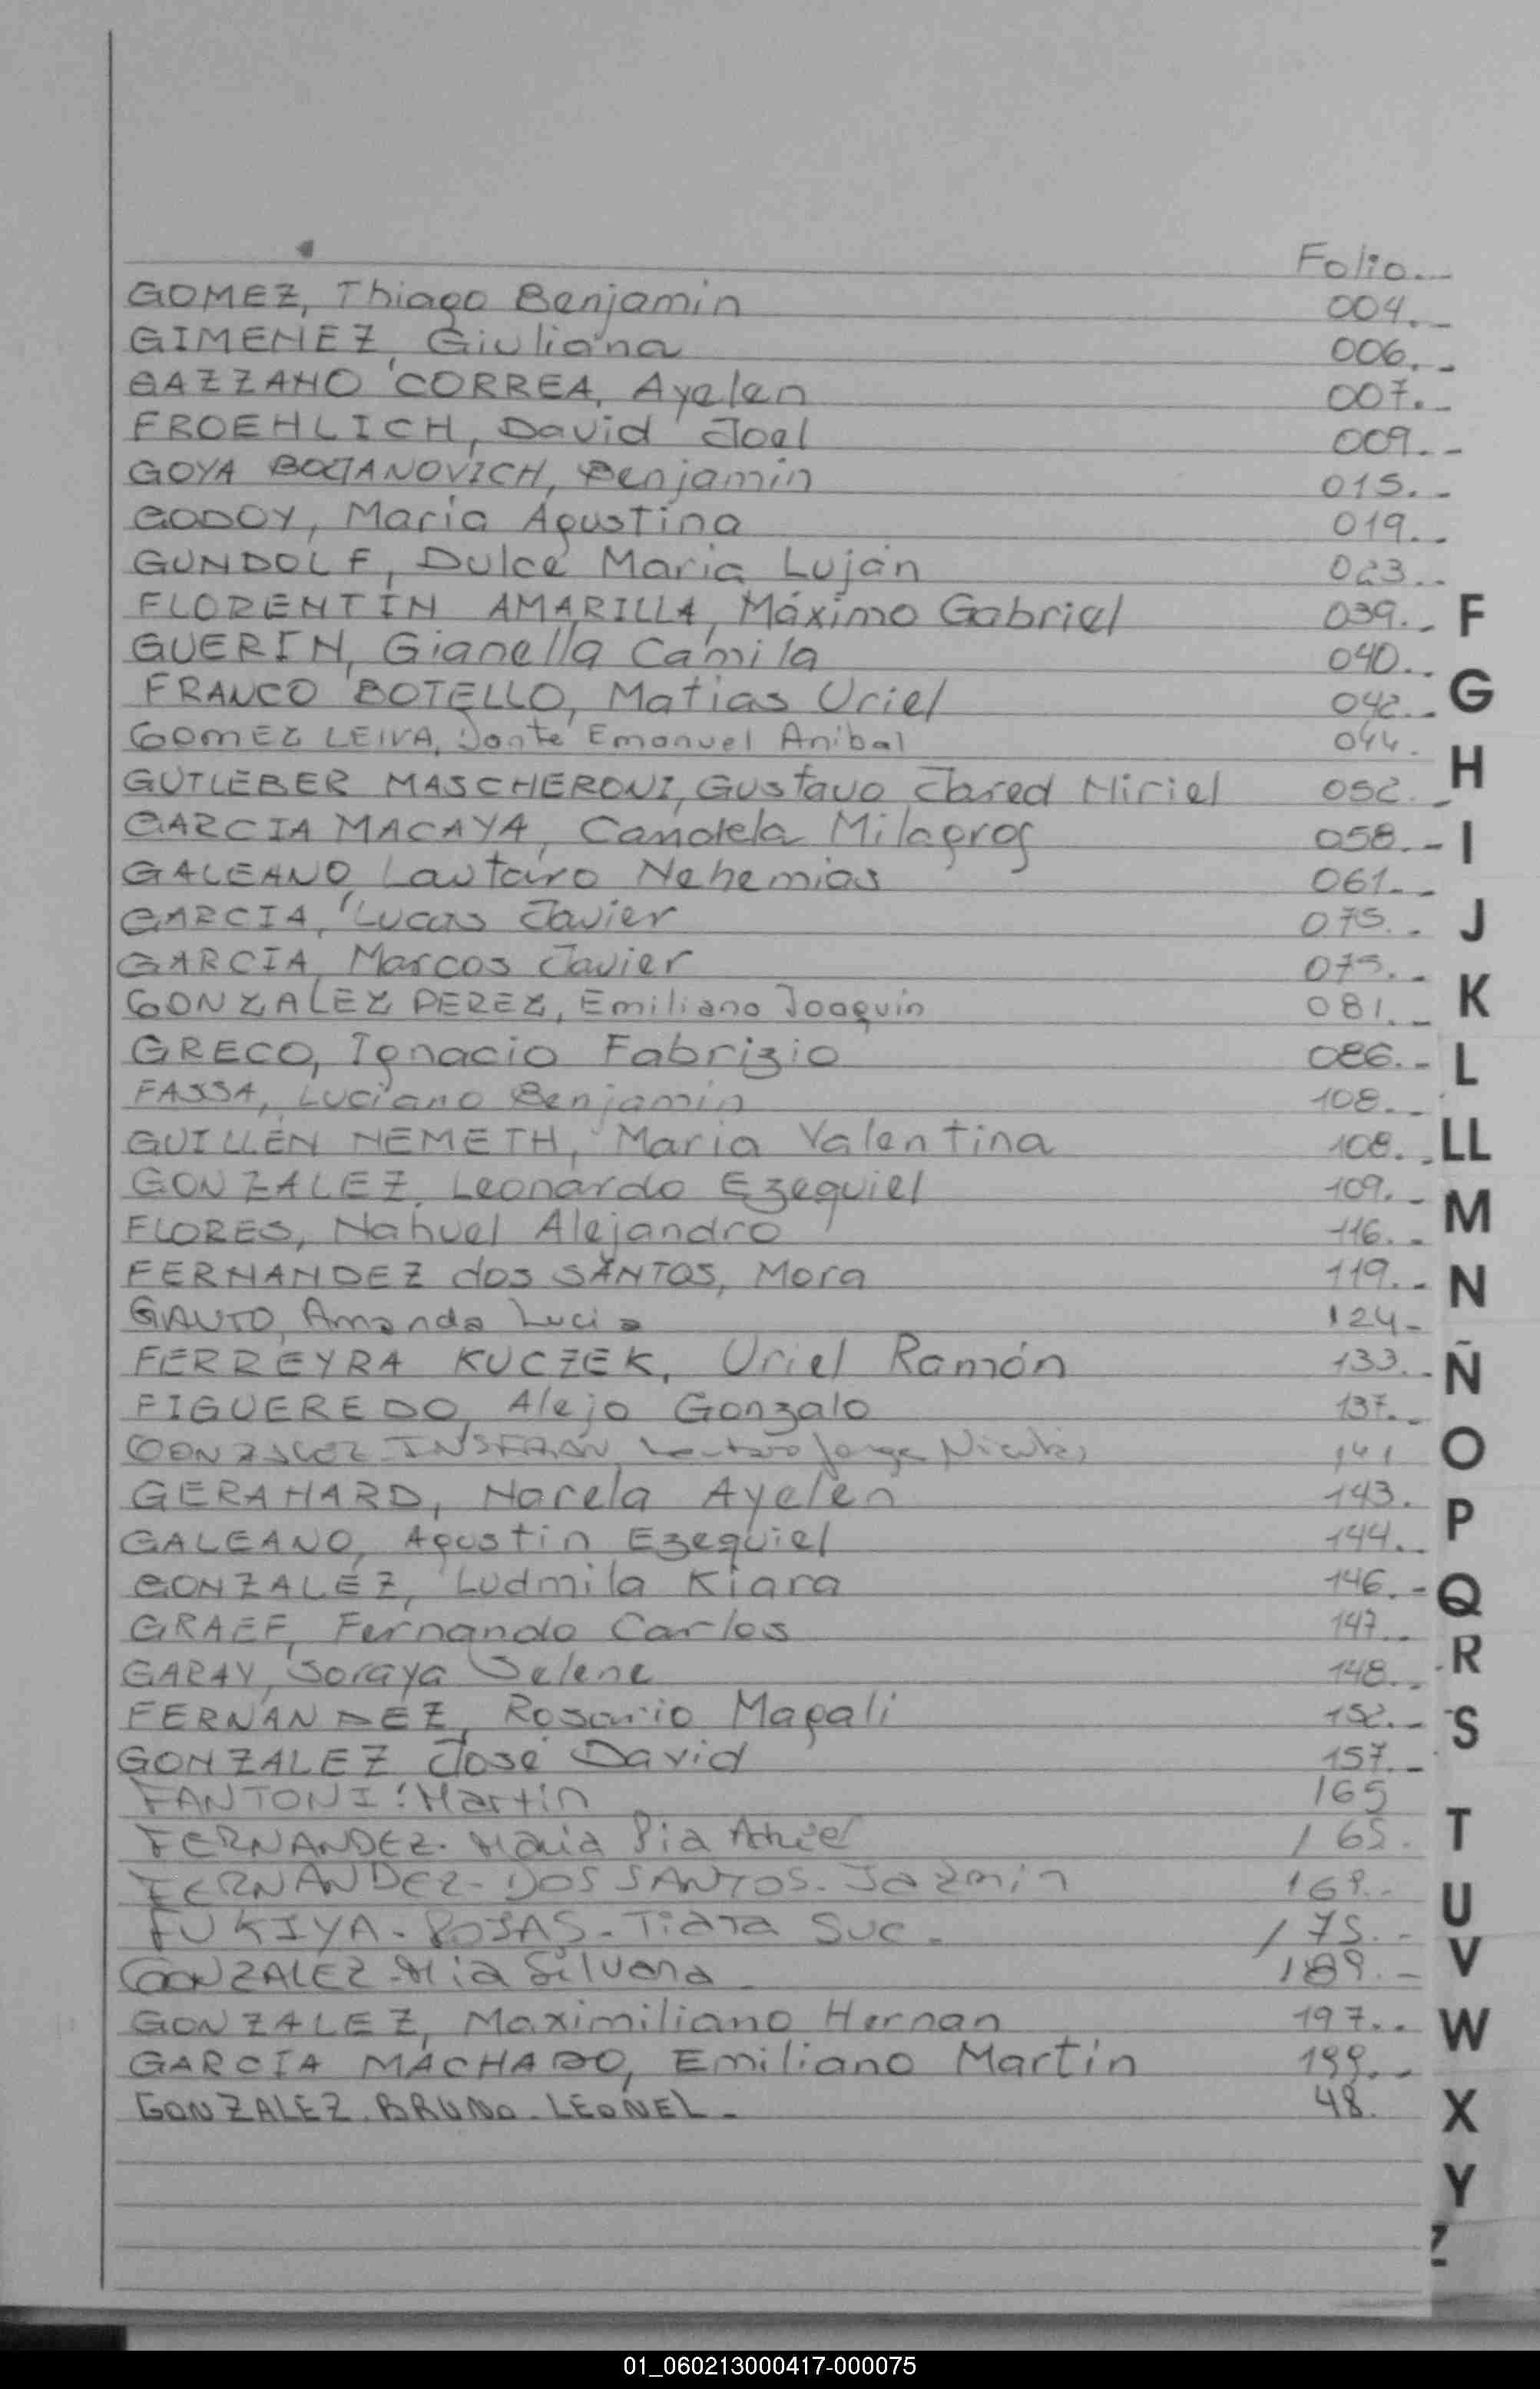 Folio.
GOMEZ, Thiago Benjamin 004.-
GIMENEZ, Giuliana 006.-
GAZZANO CORREA, Ayelen 007.-
FROEHLICH, David Joel 009.-
GOYA BOJANOVICH, Benjamin 015.-
GODOY, Maria Agustina 019.-
GUNDOLF, Dulce Maria Luján 023.-
FLORENTIN AMARILLA, Máximo Gabriel 039.-
GUERIN, Gianella Camila 040.-
FRANCO BOTELLO, Matias Uriel 042.-
GOMEZ LEIVA, Donte Emanuel Anibal 044.
GUTLEBER MASCHERONI, Gustavo Jared Niriel 052.-
GARCIA MACAYA, Candela Milagros 058.-
GALEANO, Lautaro Nehemias 061.-
GARCIA, Lucas Javier 075.-
GARCIA, Marcos Javier 075.-
GONZALEZ PEREZ, Emiliano Joaquin 081.-
GRECO, Ignacio Fabrizio 086.-
FASSA, Luciano Benjamin 108.-
GUILLÉN NEMETH, Maria Valentina 108.-
GONZALEZ, Leonardo Ezequiel 109.-
FLORES, Nahuel Alejandro 116.-
FERNANDEZ dos SANTOS, Mora 119.-
GAUTO, Amanda Lucia 124-
FERREYRA KUCZEK, Uriel Ramón 133.-
FIGUEREDO, Alejo Gonzalo 137.-
GONZALEZ INSFRAN, Lautaro Jorge Nicolás 141
GERAHARD, Narela Ayelen 143.
GALEANO, Agustin Ezequiel 144.-
GONZALEZ, Ludmila Kiara 146.-
GRAEF, Fernando Carlos 147.-
GARAY, Soraya Selene 148.-
FERNANDEZ, Rosario Magali 152.-
GONZALEZ José David 157.-
FANTONI. Martin 165
FERNANDEZ. Maria Pia 165.
FERNANDEZ-DOS SANTOS. Jazmin 169.-
FUKIYA-ROJAS-Tiara Sue. 175.-
GONZALEZ-Mia Silvana 189.-
GONZALEZ, Maximiliano Hernan 197.-
GARCIA MACHADO, Emiliano Martin 199.-
GONZALEZ. BRUNO-LEONEL- 48.
F
G
H
I
J
K
L
LL
M
N
Ñ
O
P
Q
R
S
T
U
V
W
X
Y
Z
01_060213000417-000075